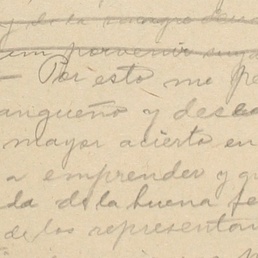 y de la sangre
un porvenir
— Por esto me pe
angueño y deseo
mayor acierto en
a emprender y q
da de la buena fe
de los representan